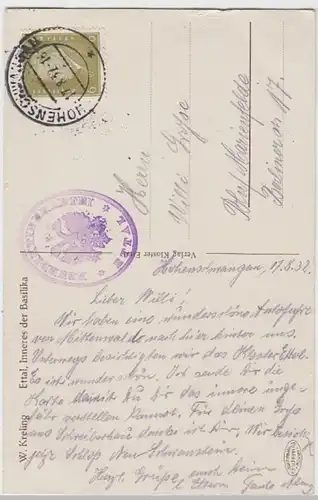 HOHENSCHWANGAU
Herrn
Willi
Bln. Marienfelde
Berliner str 17.
Verlag Kloster Ettal
ETTAL
W. Kreling Ettal, Inneres der Basilika
Hohenschwangau, 17.8.32
Lieber Willi!
Wir haben eine wunderschöne Autofahrt
von Mittenwald nach hier hinter uns.
Unterwegs besichtigten wir das Kloster Ettal.
Es ist wunderschön. Ich sende Dir die
Karte damit Du Dir das innere unge-
fähr vorstellen kannst. Für Deinen Gruß
aus Schreiberhau danke ich Dir. Wir besich.
jetzt Schloß Neu Schwanstein.
Herzl. Grüße, auch Deinen
Eltern